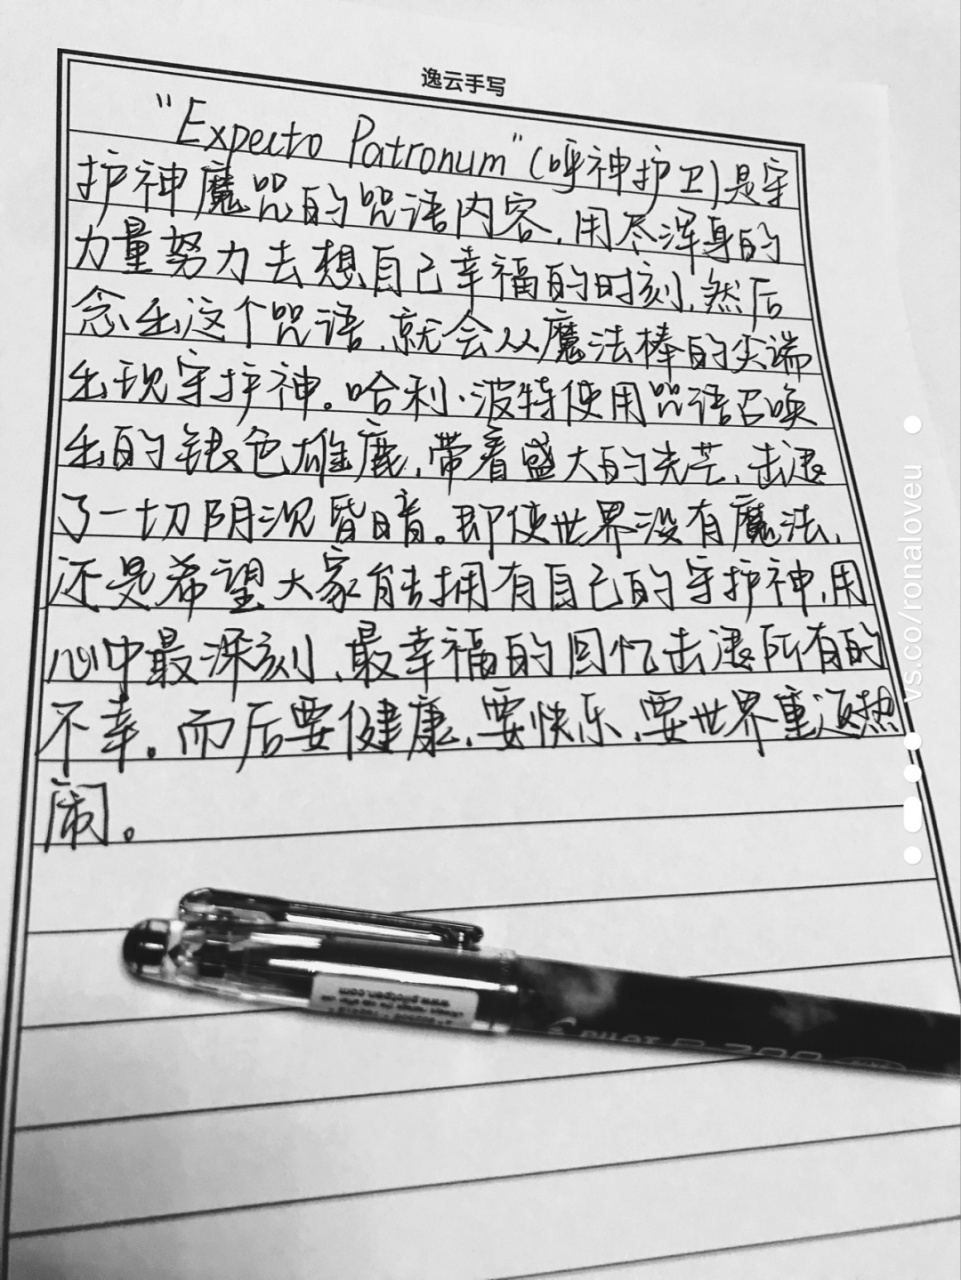 逸云手写
"Expecto Patronum"(呼神护卫)是守
护神魔咒的咒语内容,用尽浑身的
力量努力去想自己幸福的时刻,然后
念出这个咒语,就会从魔法棒的尖端
出现守护神。哈利·波特使用咒语召唤
出的银色雄鹿,带着盛大的光芒,击退
了一切阴沉昏暗。即使世界没有魔法,
还是希望大家能够拥有自己的守护神,用
心中最深刻、最幸福的回忆击退所有的
不幸。而后要健康,要快乐,要世界重返热
闹。
PILOT
vs.co/ronaloveu